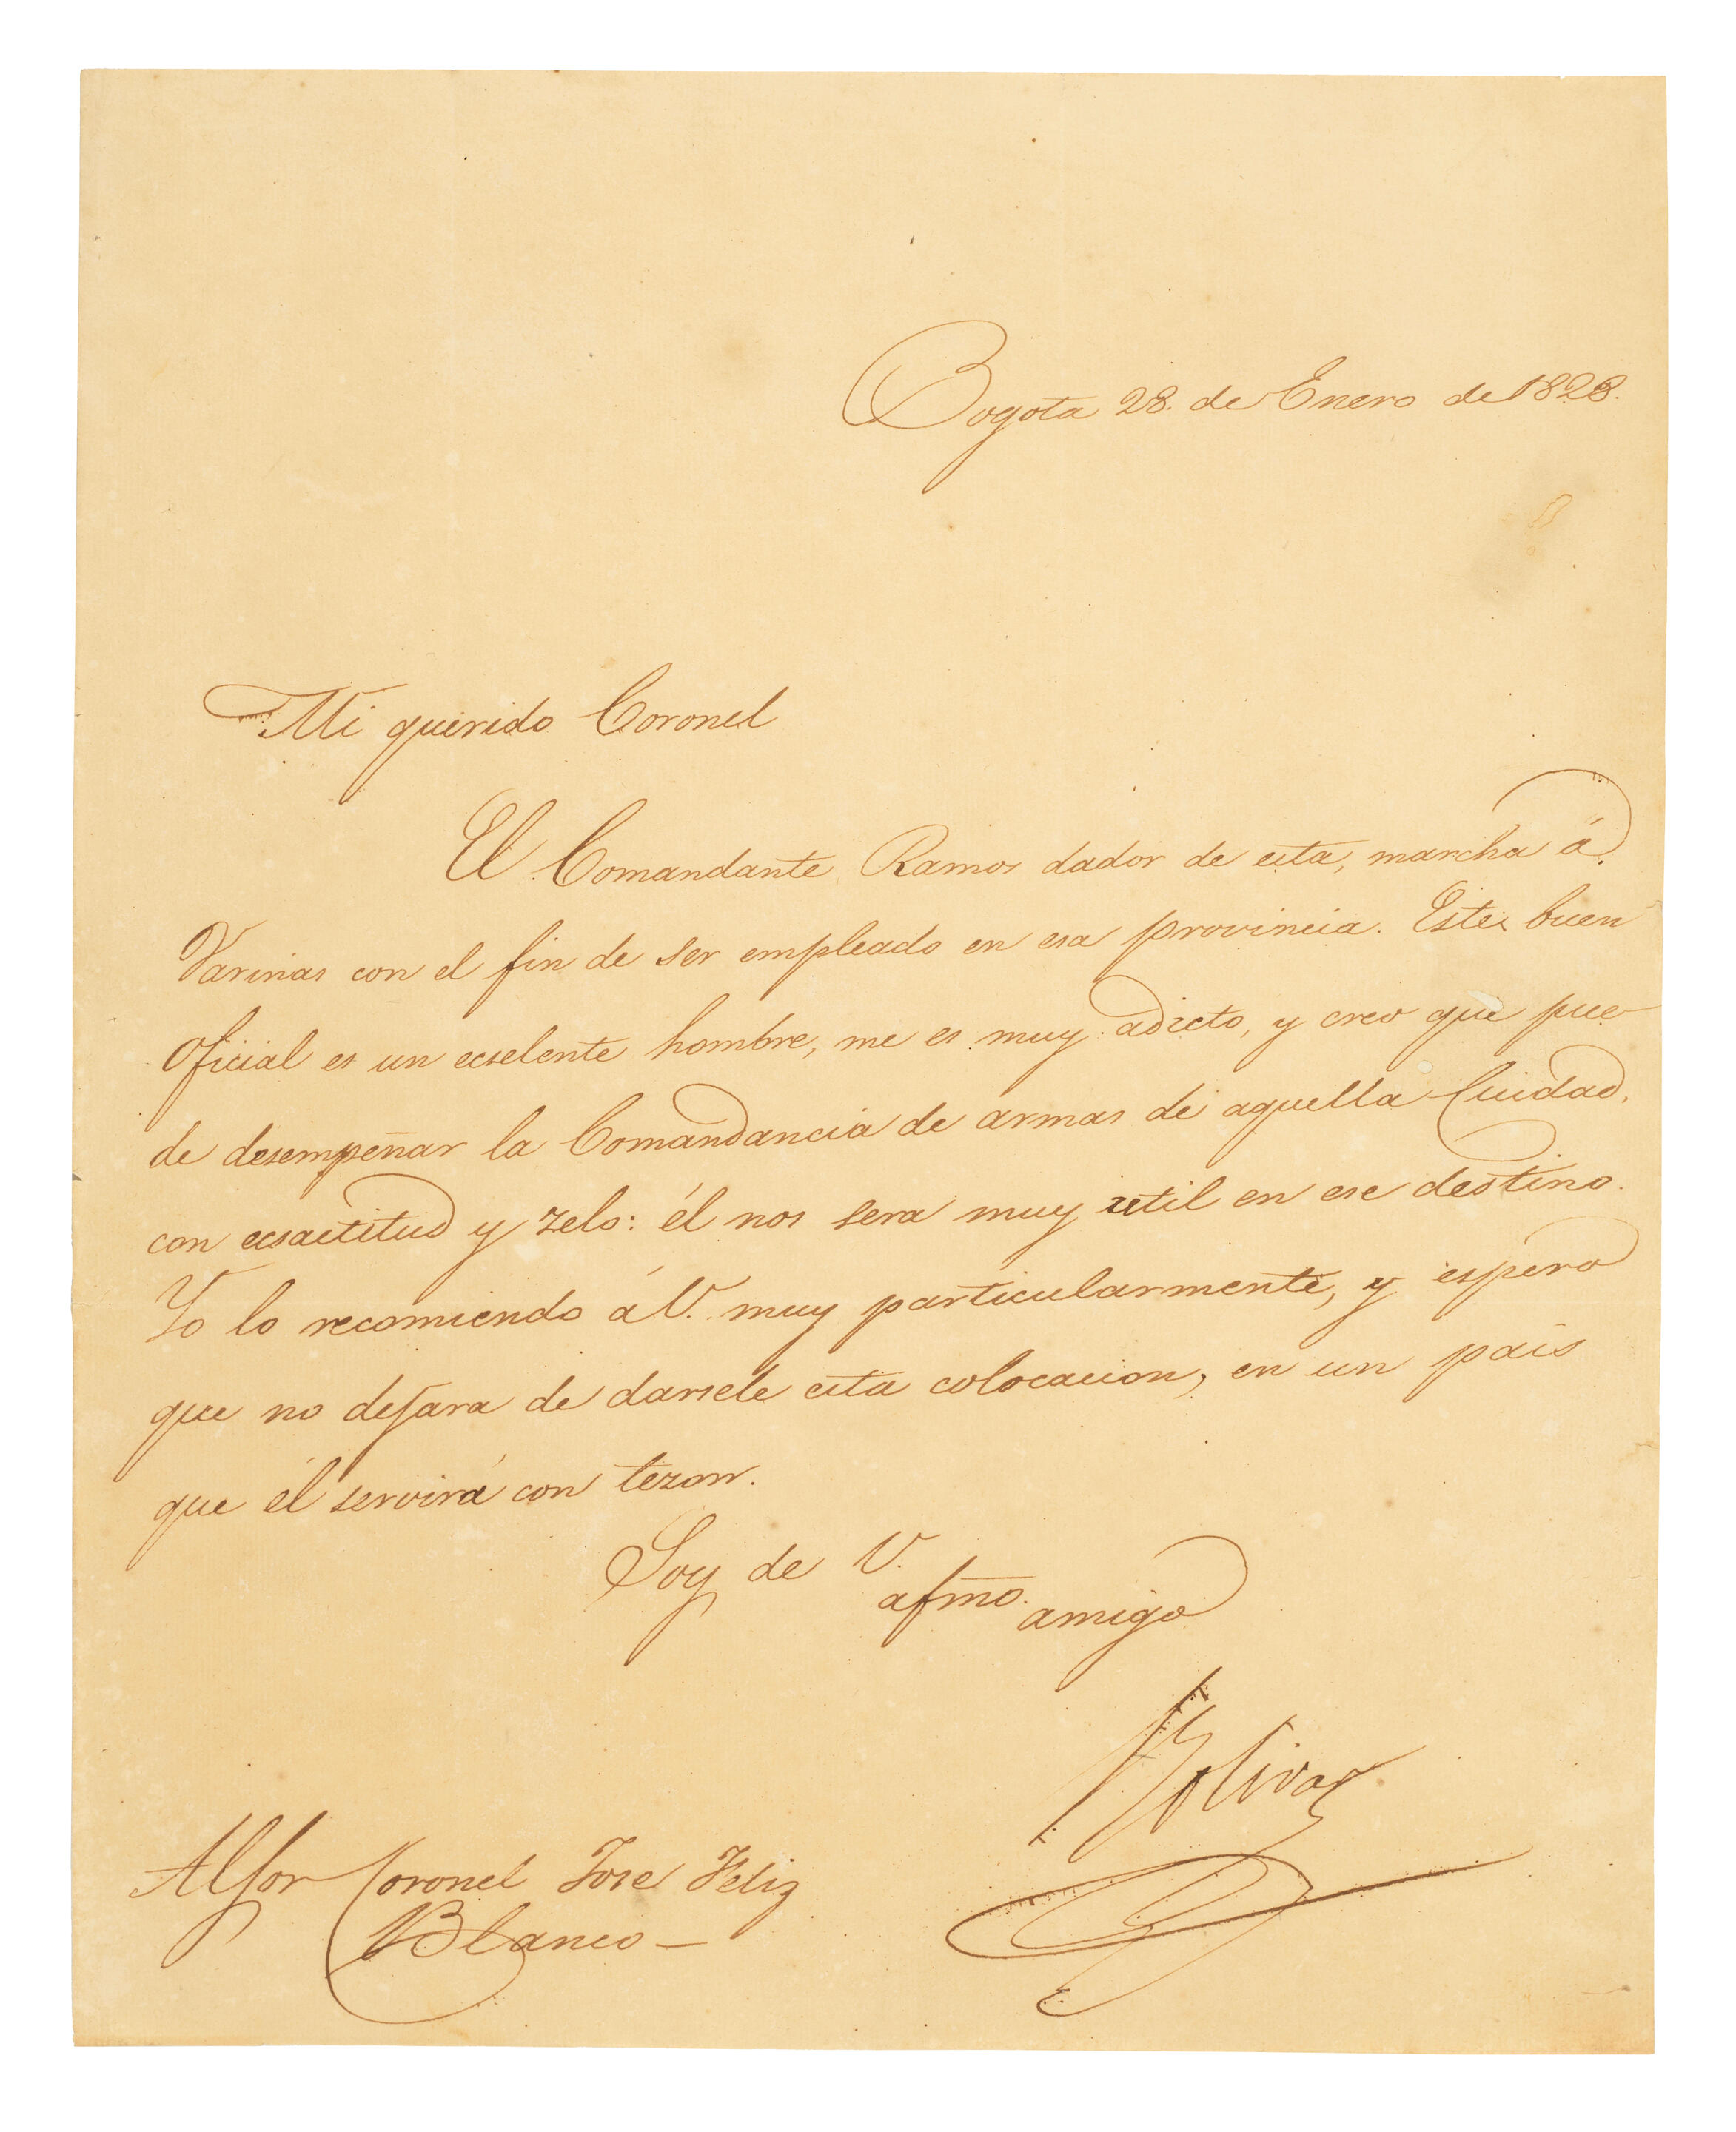 Bogota 28. de Enero de 1828.
Mi querido Coronel
El Comandante Ramos dador de esta, marcha á
Varinas con el fin de ser empleado en esa provincia. Este buen
oficial es un ecselente hombre, me es muy adicto, y creo que pue
de desempeñar la Comandancia de armas de aquella Cuidad,
con ecsactitud y zelo: él nos sera muy util en ese destino.
Yo lo recomiendo á V. muy particularmente, y espero
que no dejara de darsele esta colocacion, en un pais
que él servirá con tezon.
Soy de V.
afmo. amigo
Bolivar
Al Sor Coronel Jose Feliz
Blanco—